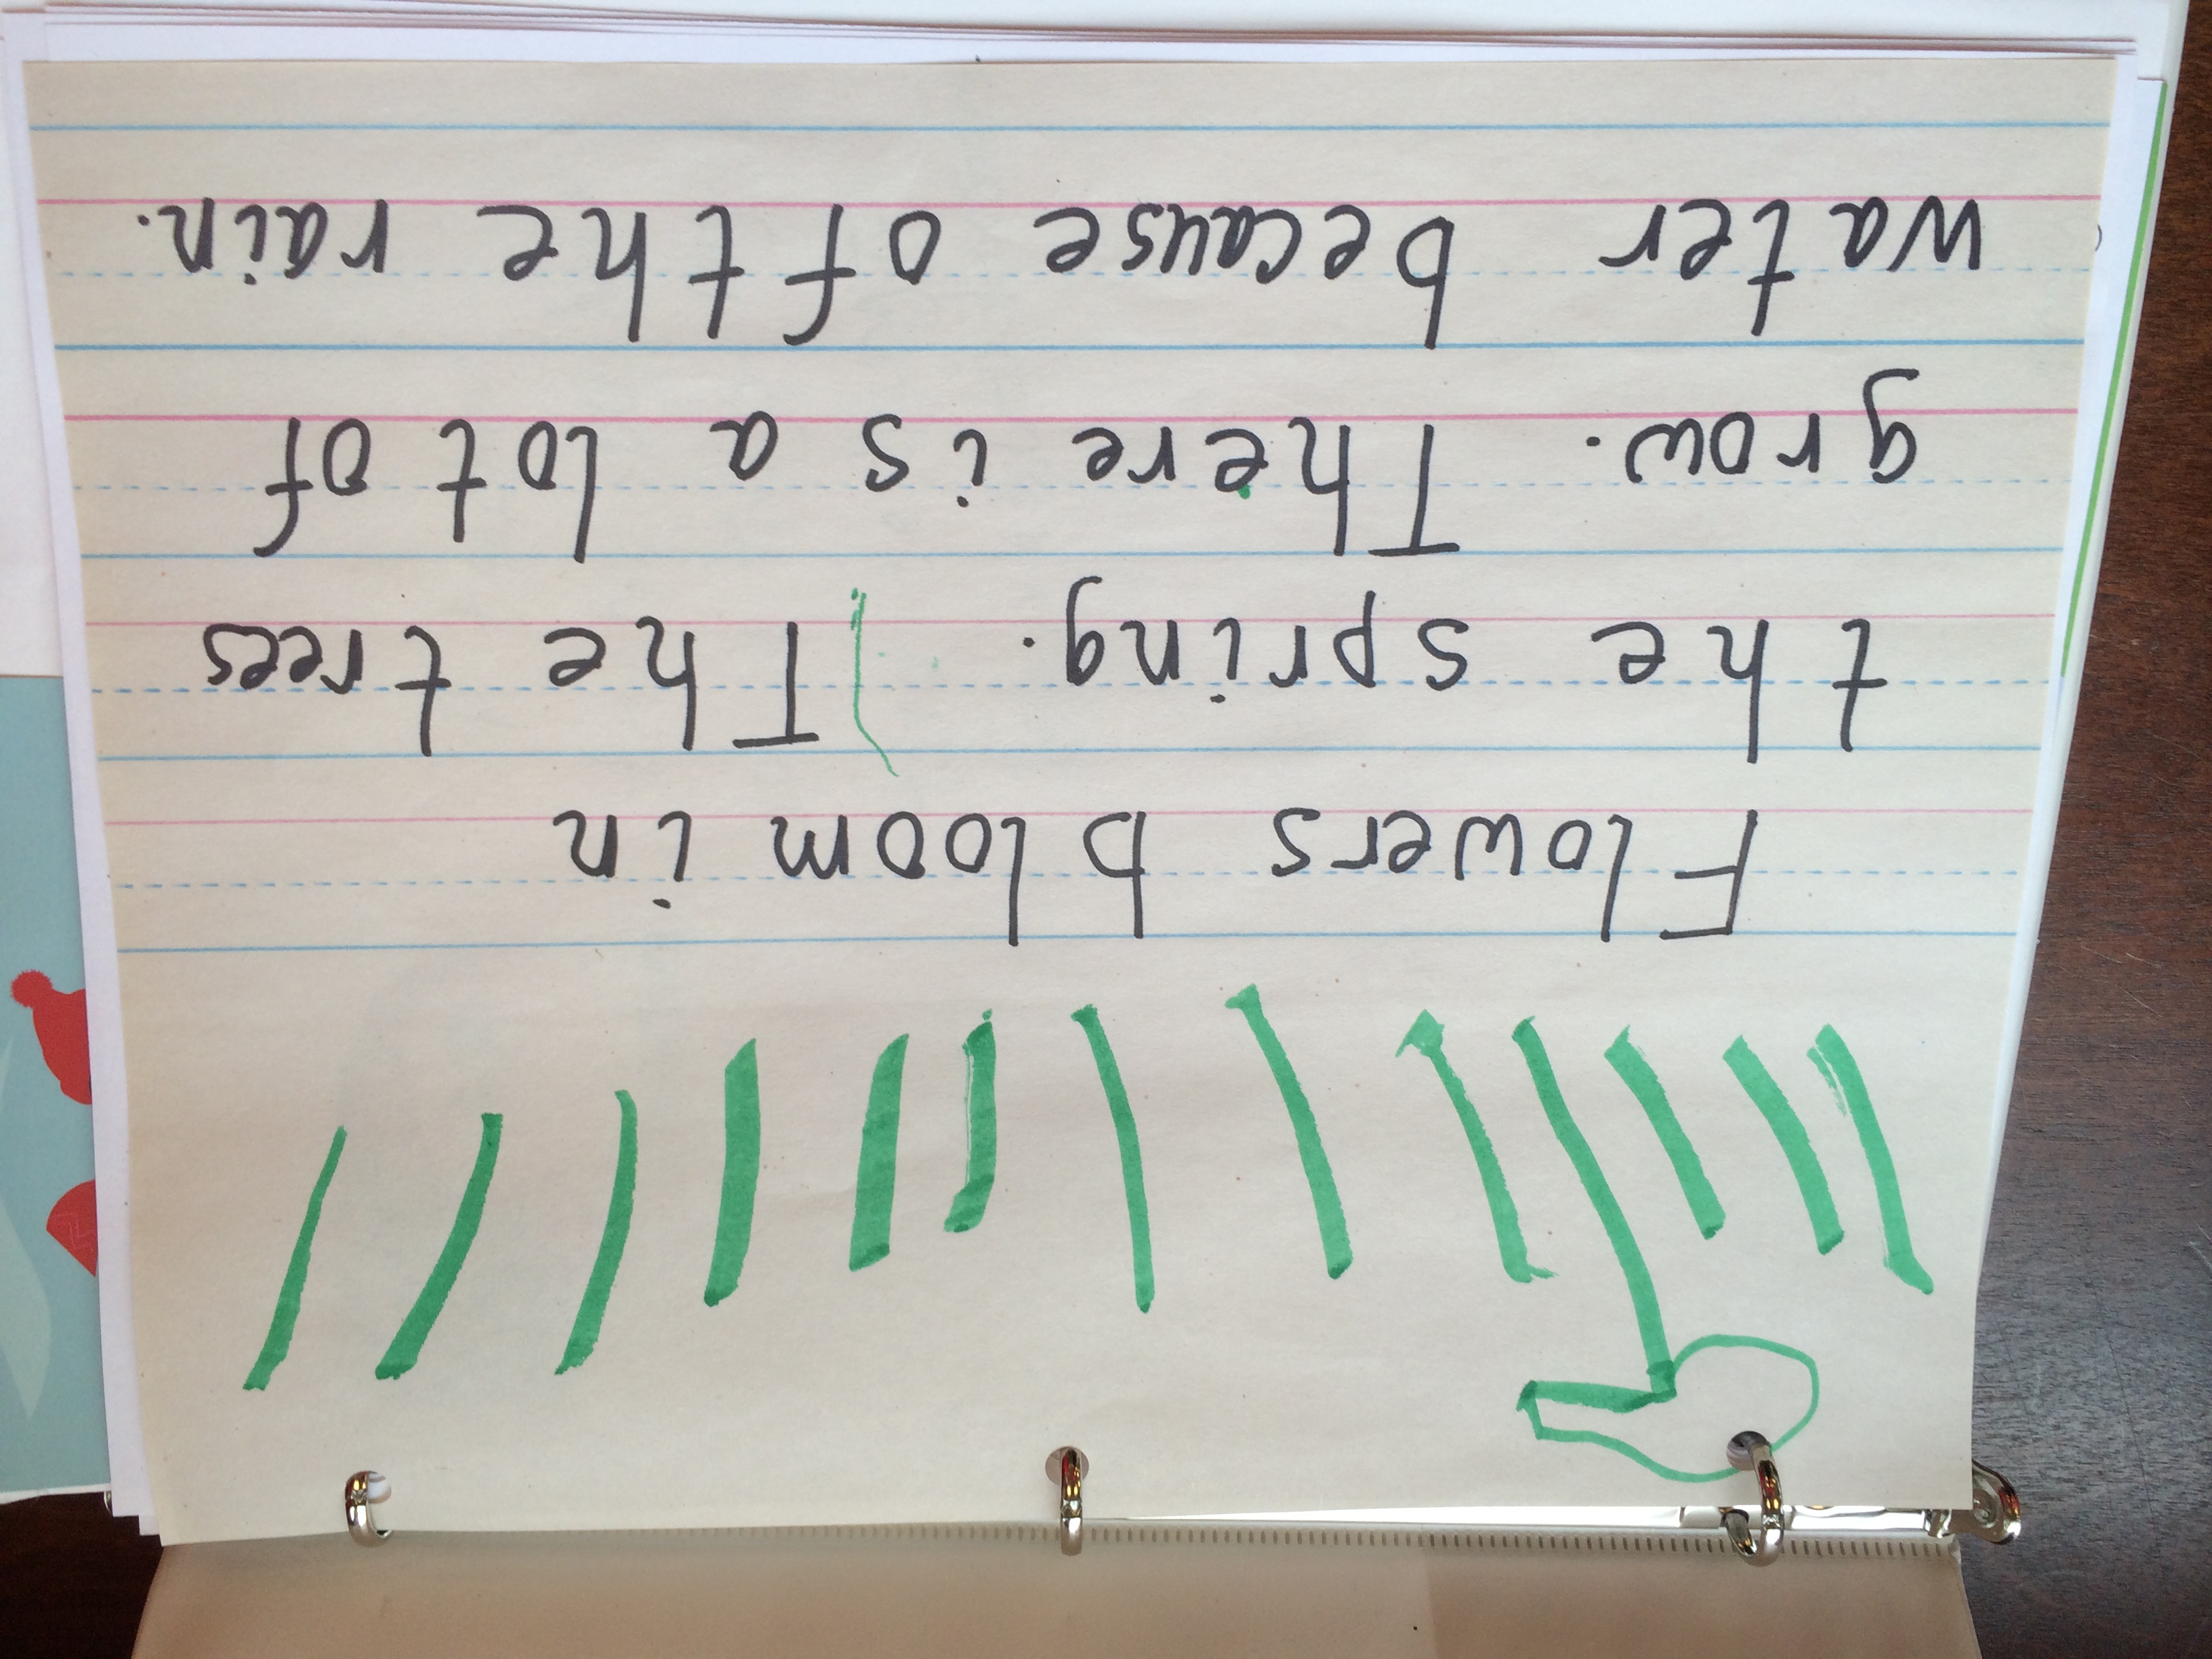 Flowers bloom in
the spring. The trees
grow. There is a lot of
water because of the rain.